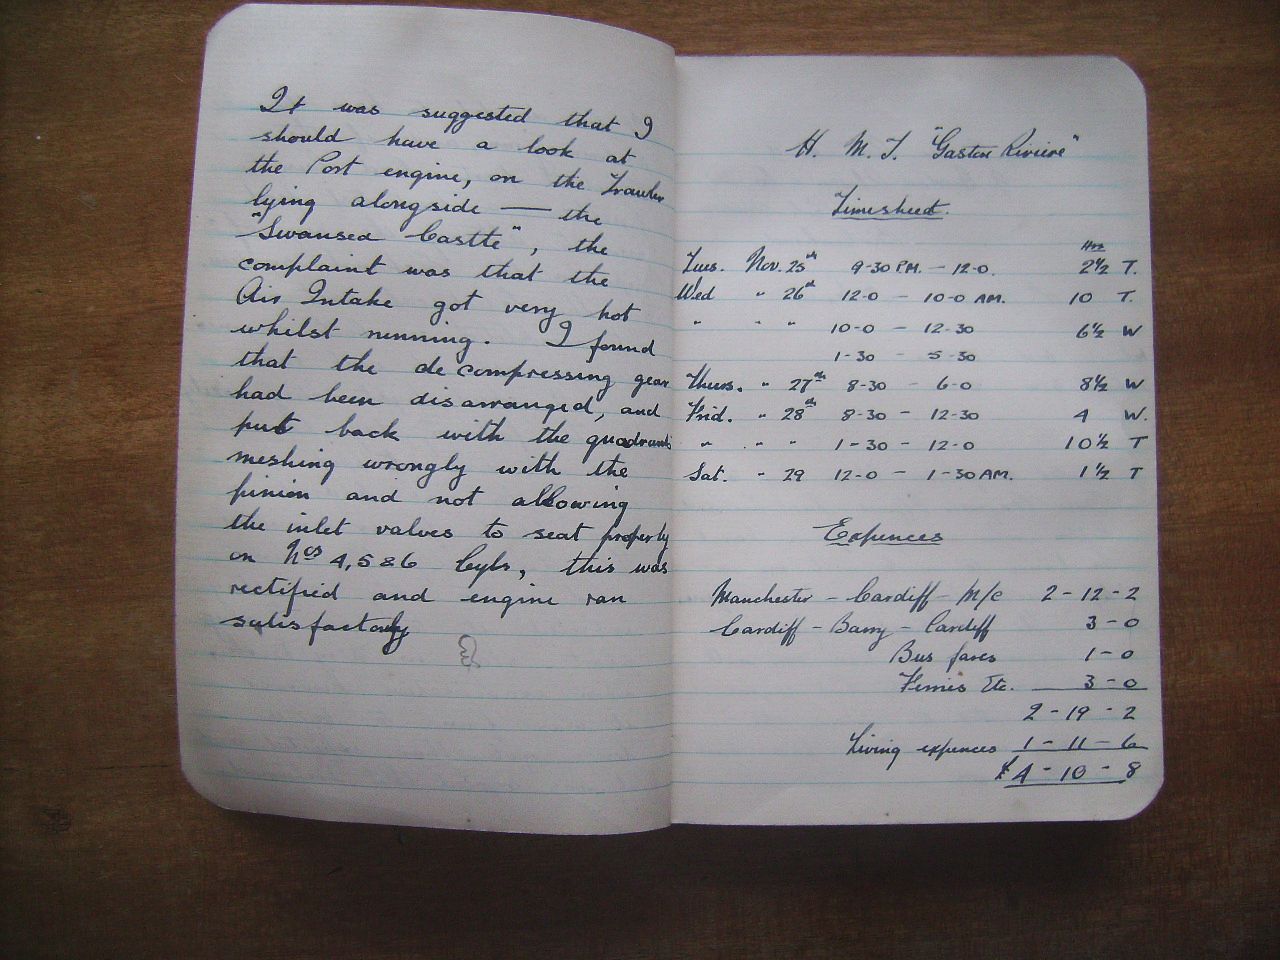 It was suggested that I
should have a look at
the Port engine, on the Trawler
lying alongside — the
"Swansea Castle", the
complaint was that the
Air Intake got very hot
whilst running. I found
that the decompressing gear
had been disarranged, and
put back with the quadrants
meshing wrongly with the
pinion and not allowing
the inlet valves to seat properly
on Nos 4, 5 & 6 Cyls, this was
rectified and engine ran
satisfactorly
H. M. T. "Gaston Riviere"
Timesheet.
Hrs
Tues. Nov. 25th 9-30 P.M. - 12-0. 2½ T.
Wed " 26th 12-0 - 10-0 AM. 10 T.
" " " 10-0 - 12-30 6½ W
1-30 - 5-30
Thurs. " 27th 8-30 - 6-0 8½ W
Frid. " 28th 8-30 - 12-30 4 W.
" " " 1-30 - 12-0 10½ T
Sat. " 29 12-0 - 1-30 AM. 1½ T
Expences
Manchester - Cardiff - M/c 2 - 12 - 2
Cardiff - Barry - Cardiff 3 - 0
Bus fares 1 - 0
Ferries Etc. 3 - 0
2 - 19 - 2
Living expences 1 - 11 - 6
£4 - 10 - 8